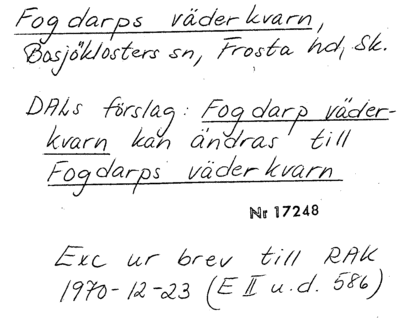 Fogdarps väderkvarn,
Bosjöklosters sn, Frosta hd, Sk.
DALs förslag: Fogdarp väder-
kvarn kan ändras till
Fogdarps väderkvarn
Nr 17248
Exc ur brev till RAK
1970-12-23 (E II u.d. 586)